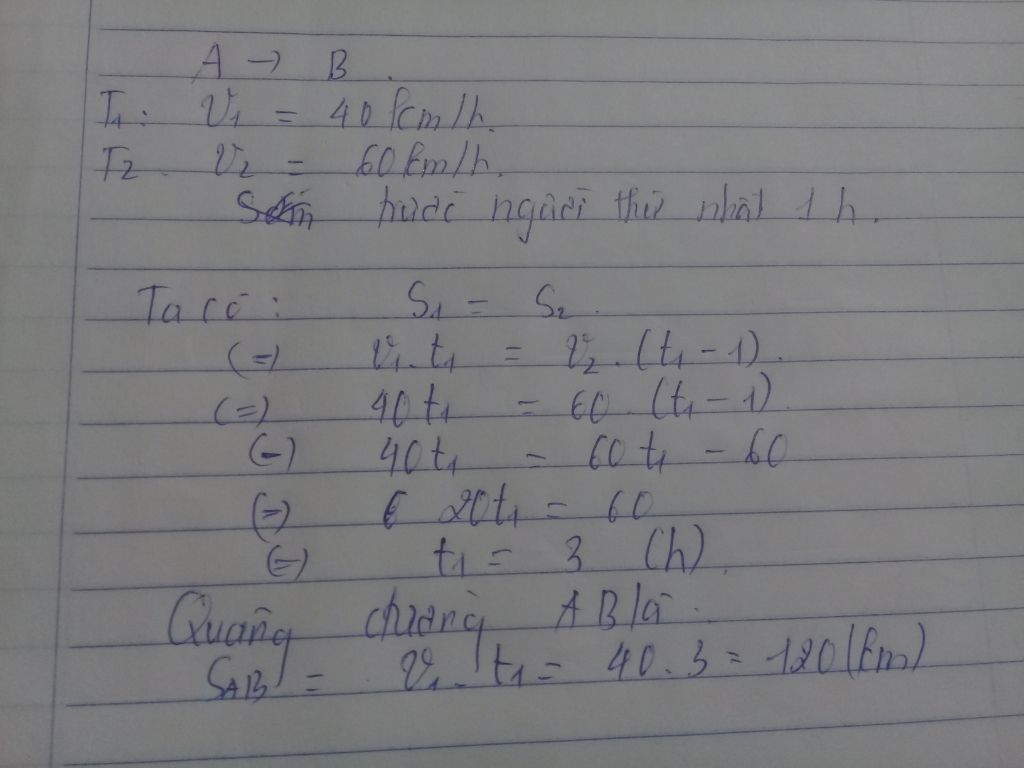 A → B.
T1: V1 = 40 km/h.
T2. V2 = 60 km/h.
trước người thứ nhất 1 h.
Ta có: S1 = S2.
(=) V1.t1 = V2.(t1 - 1).
(=) 40t1 = 60.(t1 - 1).
(=) 40t1 = 60t1 - 60
(=) 20t1 = 60
(=) t1 = 3 (h).
Quãng đường AB là.
SAB = V1.t1 = 40.3 = 120 (km)